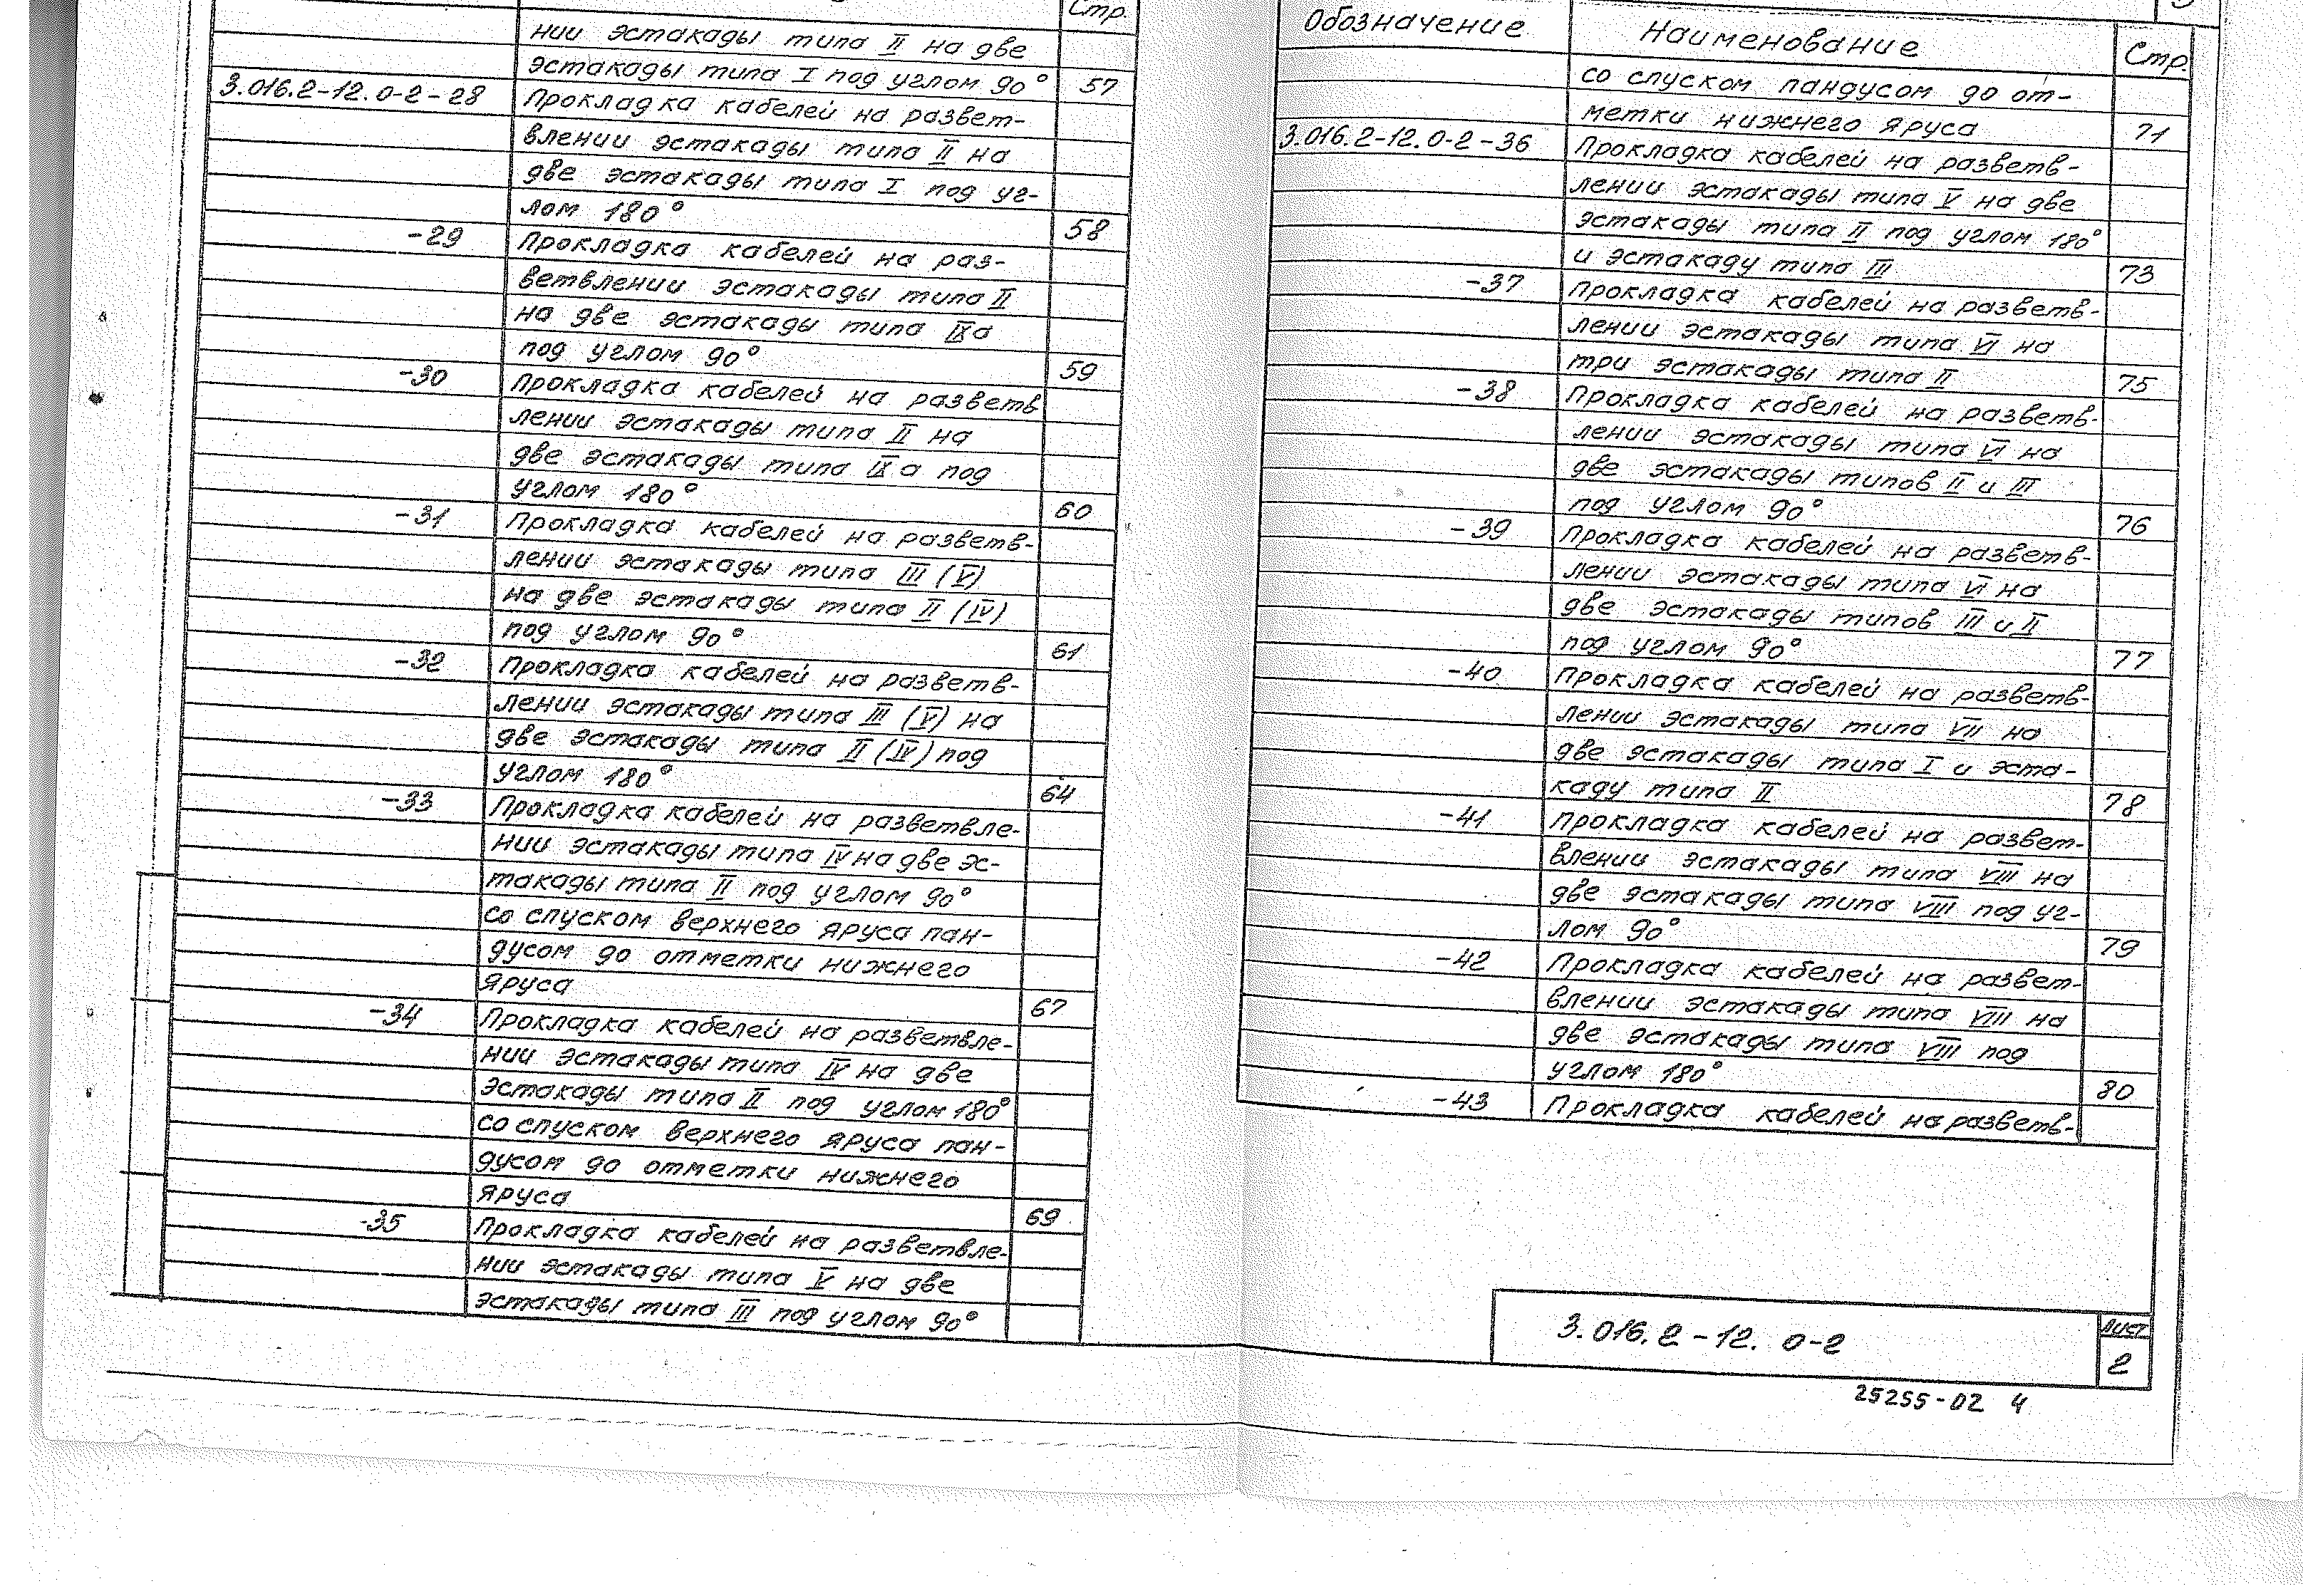 Стр.
нии эстакады типа II на две
эстакады типа I под углом 90° 57
3.016.2-12.0-2-28 Прокладка кабелей на развет-
влении эстакады типа II на
две эстакады типа I под уг-
лом 180° 58
-29 Прокладка кабелей на раз-
ветвлении эстакады типа II
на две эстакады типа IXа
под углом 90° 59
-30 Прокладка кабелей на разветв
лении эстакады типа II на
две эстакады типа IXа под
углом 180° 60
-31 Прокладка кабелей на разветв-
лении эстакады типа III (V)
на две эстакады типа II (IV)
под углом 90° 61
-32 Прокладка кабелей на разветв-
лении эстакады типа III (V) на
две эстакады типа II (IV) под
углом 180° 64
-33 Прокладка кабелей на разветвле-
нии эстакады типа IV на две эс-
такады типа II под углом 90°
со спуском верхнего яруса пан-
дусом до отметки нижнего
яруса 67
-34 Прокладка кабелей на разветвле-
нии эстакады типа IV на две
эстакады типа II под углом 180°
со спуском верхнего яруса пан-
дусом до отметки нижнего
яруса 69
-35 Прокладка кабелей на разветвле-
нии эстакады типа V на две
эстакады типа III под углом 90°
Обозначение Наименование Стр.
со спуском пандусом до от-
метки нижнего яруса 71
3.016.2-12.0-2-36 Прокладка кабелей на разветв-
лении эстакады типа V на две
эстакады типа II под углом 180°
и эстакаду типа III 73
-37 Прокладка кабелей на разветв-
лении эстакады типа VI на
три эстакады типа II 75
-38 Прокладка кабелей на разветв-
лении эстакады типа VI на
две эстакады типов II и III
под углом 90° 76
-39 Прокладка кабелей на разветв-
лении эстакады типа VI на
две эстакады типов III и II
под углом 90° 77
-40 Прокладка кабелей на разветв-
лении эстакады типа VII на
две эстакады типа I и эста-
каду типа II 78
-41 Прокладка кабелей на развет-
влении эстакады типа VIII на
две эстакады типа VIII под уг-
лом 90° 79
-42 Прокладка кабелей на развет-
влении эстакады типа VIII на
две эстакады типа VIII под
углом 180° 80
-43 Прокладка кабелей на разветв-
3.016.2-12. 0-2
Лист
2
25255-02 4